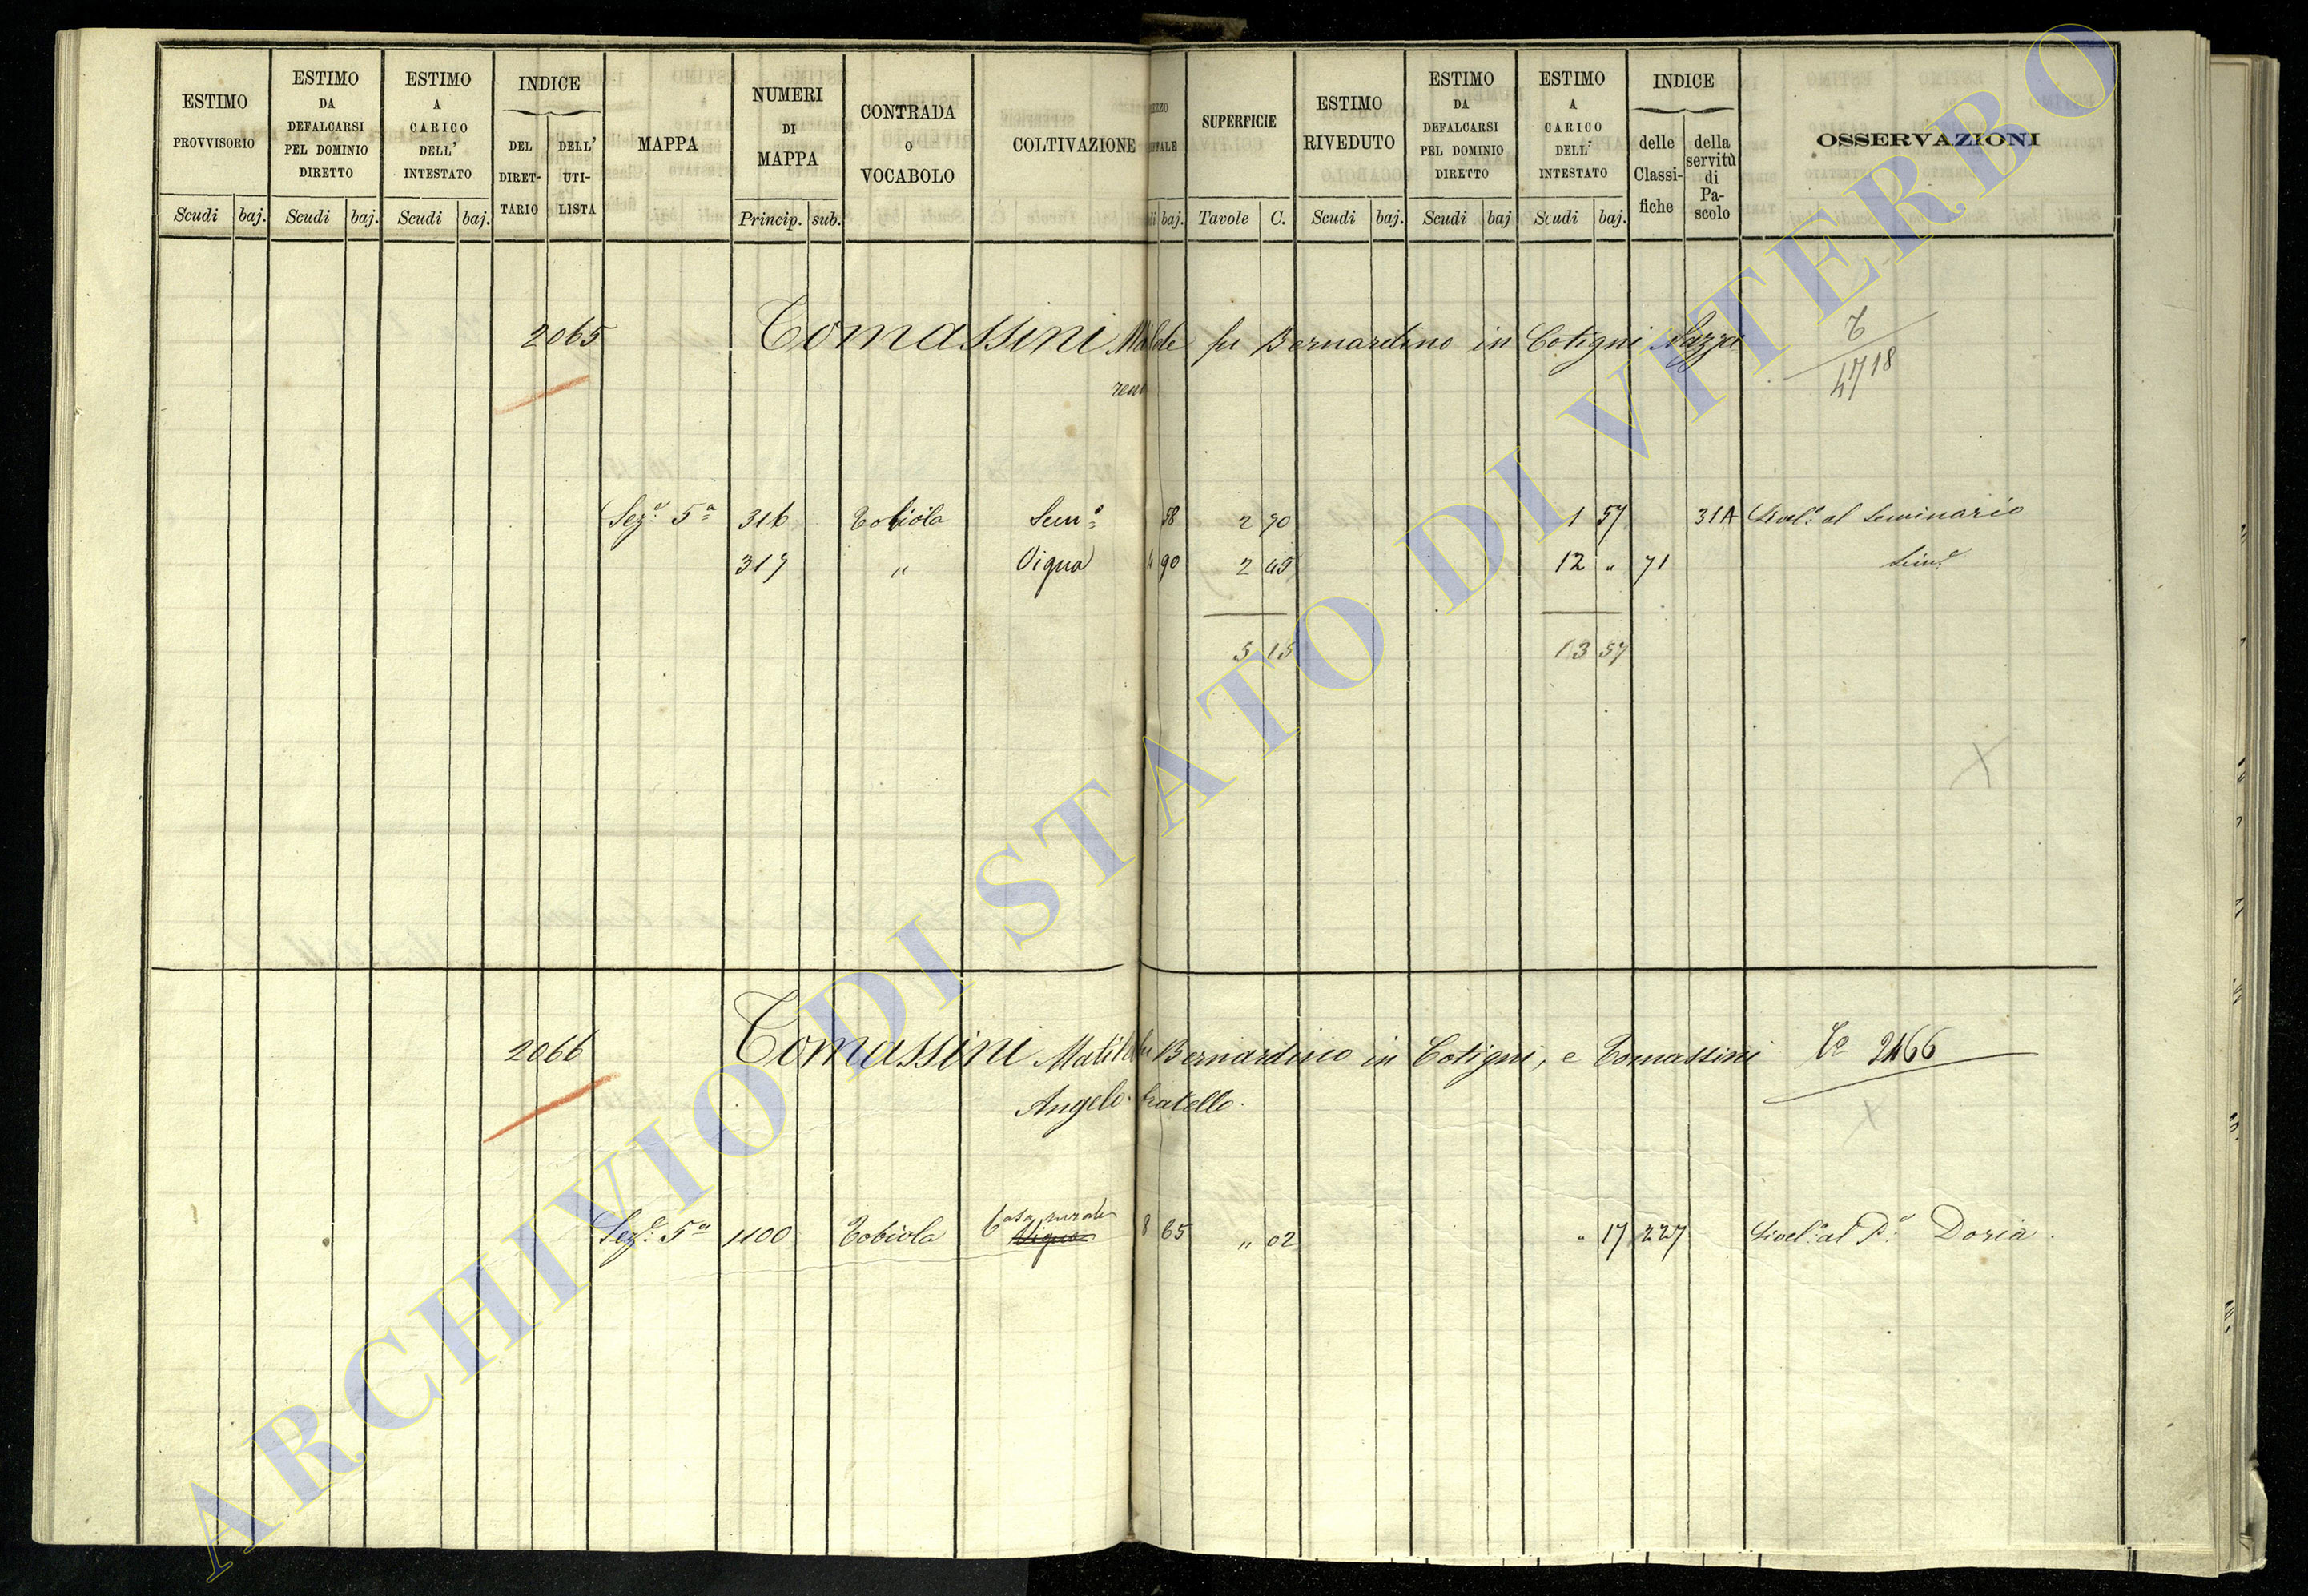 ESTIMO PROVVISORIO
ESTIMO DA DEFALCARSI PEL DOMINIO DIRETTO
ESTIMO A CARICO DELL' INTESTATO
INDICE
DEL DIRET-TARIO
DELL' UTI-LISTA
MAPPA
NUMERI DI MAPPA
CONTRADA O VOCABOLO
COLTIVAZIONE
SUPERFICIE
ESTIMO RIVEDUTO
ESTIMO DA DEFALCARSI PEL DOMINIO DIRETTO
ESTIMO A CARICO DELL' INTESTATO
INDICE
delle Classi-fiche
della servitù di Pa-scolo
OSSERVAZIONI
Scudi baj. Scudi baj. Scudi baj. Princip. sub. baj. Tavole C. Scudi baj. Scudi baj Scudi baj.
2065 Tomassini fu Bernardino in Cotigni
4718
Sez.e 5a 316 Tobiola Sem.o 58 2 70 1 57 31A Livel.o al Seminario
317 " Vigna 90 2 45 12 " 71
5 15 13 57
2066 Tomassini Bernardino in Cotigni, e Tomassini 2466
Angelo fratello.
Sez.e 5a 1100 Tobiola Casa rurale Vigna 8 65 " 02 " 17 227 Livel.o al P.e Doria.
ARCHIVIO DI STATO DI VITERBO